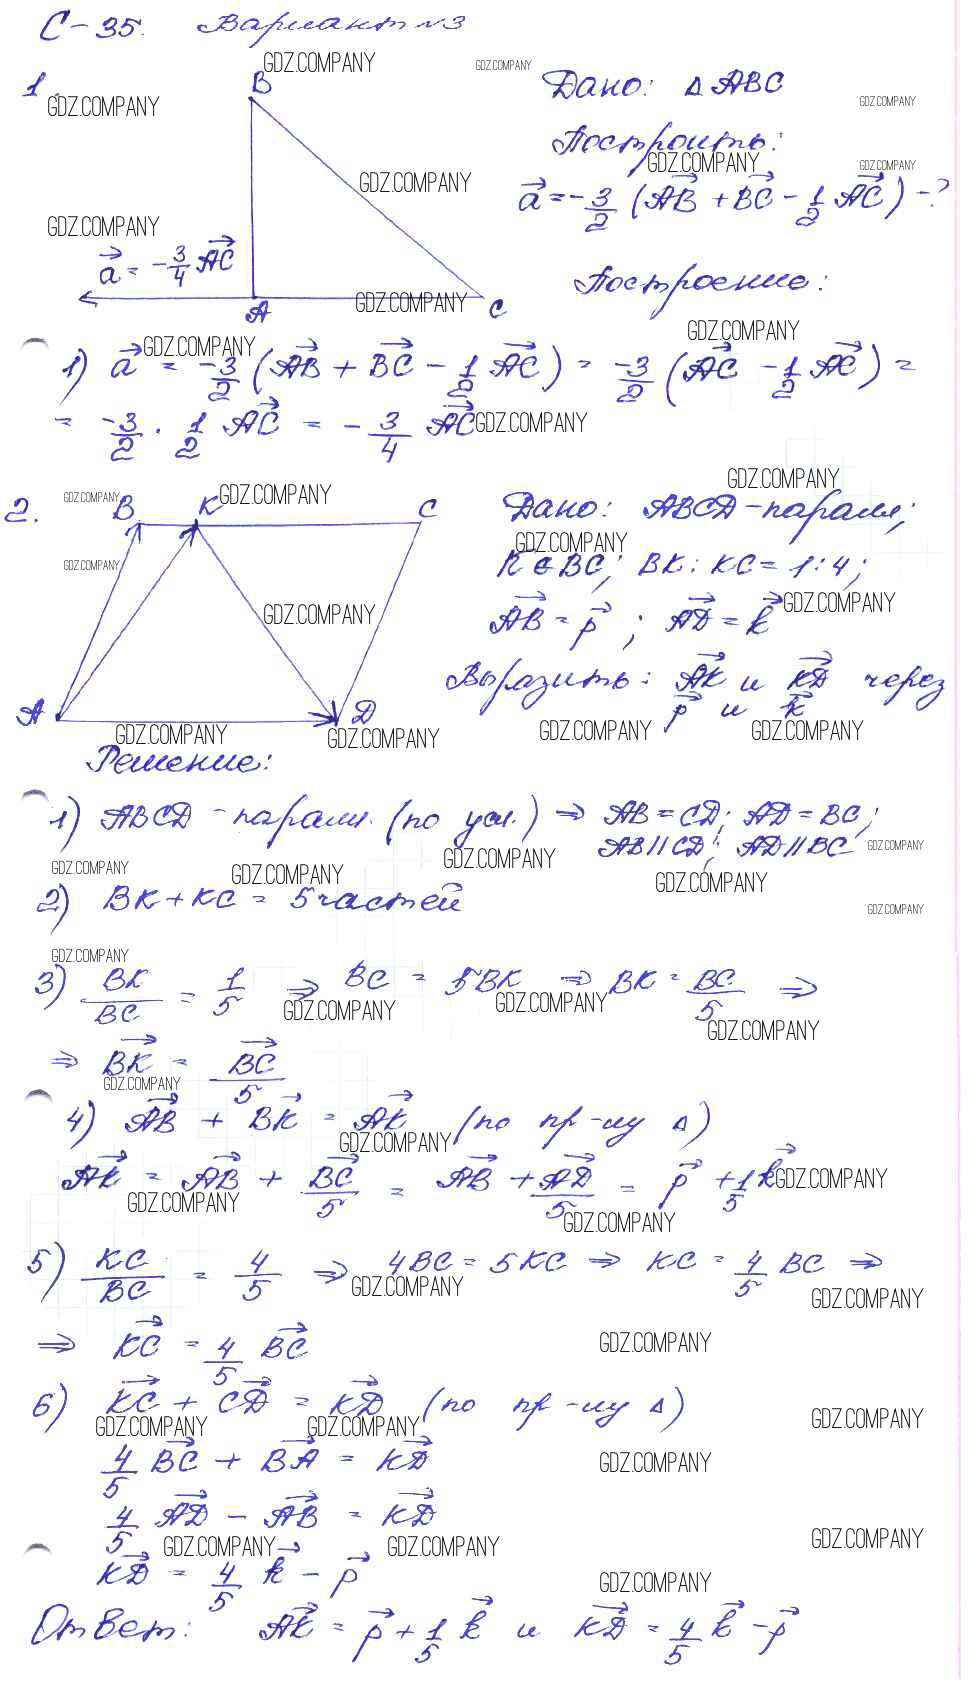 С-35. Вариант №3
1.
B
A
C
a⃗ = -3/4 AC⃗
Дано: △ ABC
Построить:
a⃗ = -3/2 (AB⃗ + BC⃗ - 1/2 AC⃗) - ?
Построение:
1) a⃗ = -3/2 (AB⃗ + BC⃗ - 1/2 AC⃗) = -3/2 (AC⃗ - 1/2 AC⃗) =
= -3/2 · 1/2 AC⃗ = - 3/4 AC⃗
2.
B K C
A D
Дано: ABCD - паралл;
K ∈ BC; BK : KC = 1 : 4;
AB⃗ = p⃗ ; AD⃗ = k⃗
Выразить: AK⃗ и KD⃗ через
p⃗ и k⃗
Решение:
1) ABCD - паралл. (по усл.) ⇒ AB = CD; AD = BC;
AB || CD; AD || BC
2) BK + KC = 5 частей
3) BK/BC = 1/5 ⇒ BC = 5BK ⇒ BK = BC/5 ⇒
⇒ BK⃗ = BC⃗/5
4) AB⃗ + BK⃗ = AK⃗ (по пр-лу △)
AK⃗ = AB⃗ + BC⃗/5 = AB⃗ + AD⃗/5 = p⃗ + 1/5 k⃗
5) KC/BC = 4/5 ⇒ 4BC = 5KC ⇒ KC = 4/5 BC ⇒
⇒ KC⃗ = 4/5 BC⃗
6) KC⃗ + CD⃗ = KD⃗ (по пр-лу △)
4/5 BC⃗ + BA⃗ = KD⃗
4/5 AD⃗ - AB⃗ = KD⃗
KD⃗ = 4/5 k⃗ - p⃗
Ответ: AK⃗ = p⃗ + 1/5 k⃗ и KD⃗ = 4/5 k⃗ - p⃗
GDZ.COMPANY